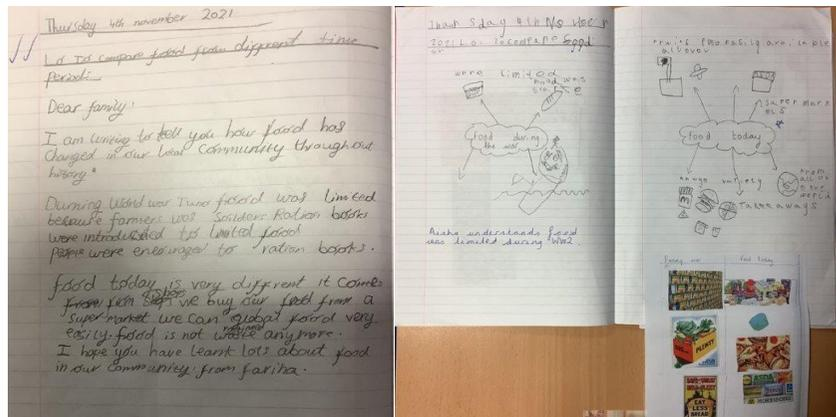 Thursday 4th november 2021
Lo To compare food from different time
period.
Dear family,
I am writing to tell you how food has
changed in our local community throughout
history.
Durning World war Two food was limited
because farmers was Ration books
were to limited food
were encouraged to ration books.
food today is very different it comes
from from shops we buy our food from a
super market we can global food very
easily. food is not anymore.
I hope you have learnt lots about food
in our community. from fariha.
4th
2021 Lo To compare food
were limited
food was
food during
the war
understands food
was limited during WW2.
all over
super mark
ets
food today
variety
From
all over
the
world
Takeaways
During war
food today
PLENTY
EAT
LESS
BREAD
ASDA
MORRISONS